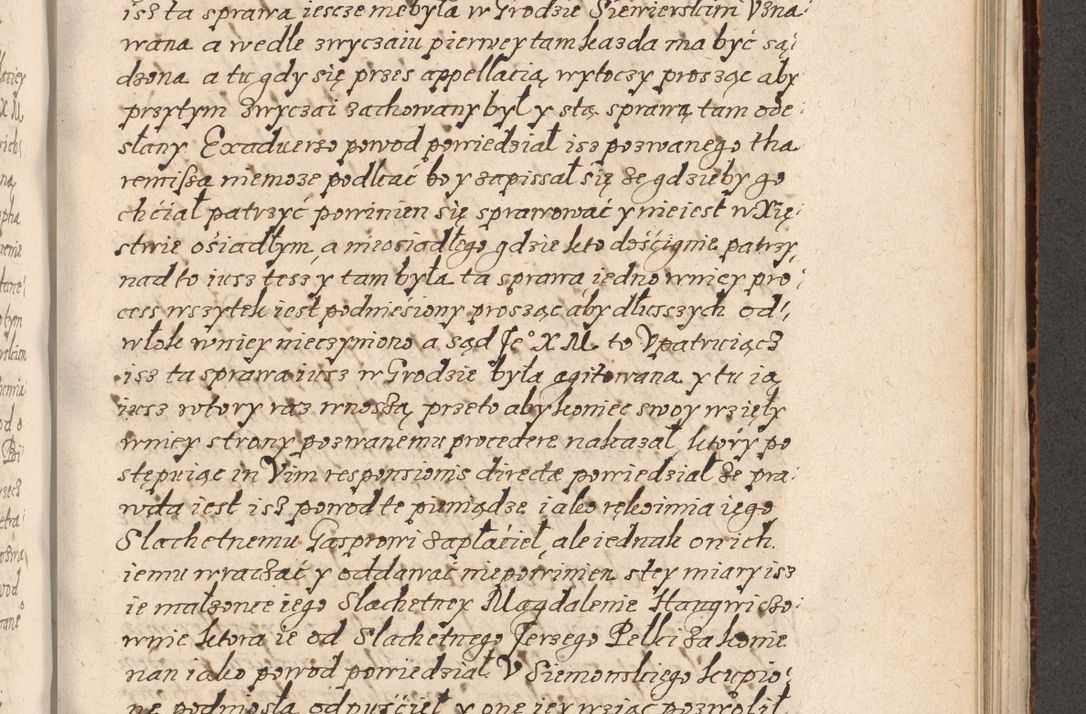 isz ta sprawa iescze niebyła w Grodzie Siewierskim Vzna
wana a wedle zwyczaiu pierwey tam kazda ma być są
dzona a tu gdy się przes appellatią wytoczy prosząc aby
przytym zwyczai zachowany był y stą sprawą tam ode
słany Exaduerzo powod powiedział isz pozwanego tha
remissa niemoze podleać bo y zapissał się ze gdzieby go
chciał patrzyć powinien się sprawować y nieiest w Xię
stwie ośiadłym, a nieosiadłego gdzie kto doścignie patrzy
nad to iusz tesz y tam była ta sprawa iedno wniey pro
cess wszytek iest podnieśiony prosząc aby dłusszych od
włok wniey nieczyniono a sąd Je° X M. to Vpatruiącz
isz ta sprawa iusz w Grodzie była agitowana y tu ią
iusz wtory raz wnoszą przeto aby koniec swoy wzięły
wniey strony pozwanemu procedere nakazał, ktory po
stępuiąc in Vim responsionis directe powiedział ze pra
wda iest isz powod te pieniądze iako rękoimia iego
Slachetnemu Gasprowi zapłaćieł, ale iednak on ich
iemu wraczać y oddawać niepowinien stey miary isz
ie małzonce iego Slachetney Magdalenie Haugwiczo
wnie ktora ie od Slachetnego Jerzego Pełki za konie
nan iako powod powiedział V Siemonskiego kupio
ne podniosła odpuśćieł y one iey wziąc pozwolił